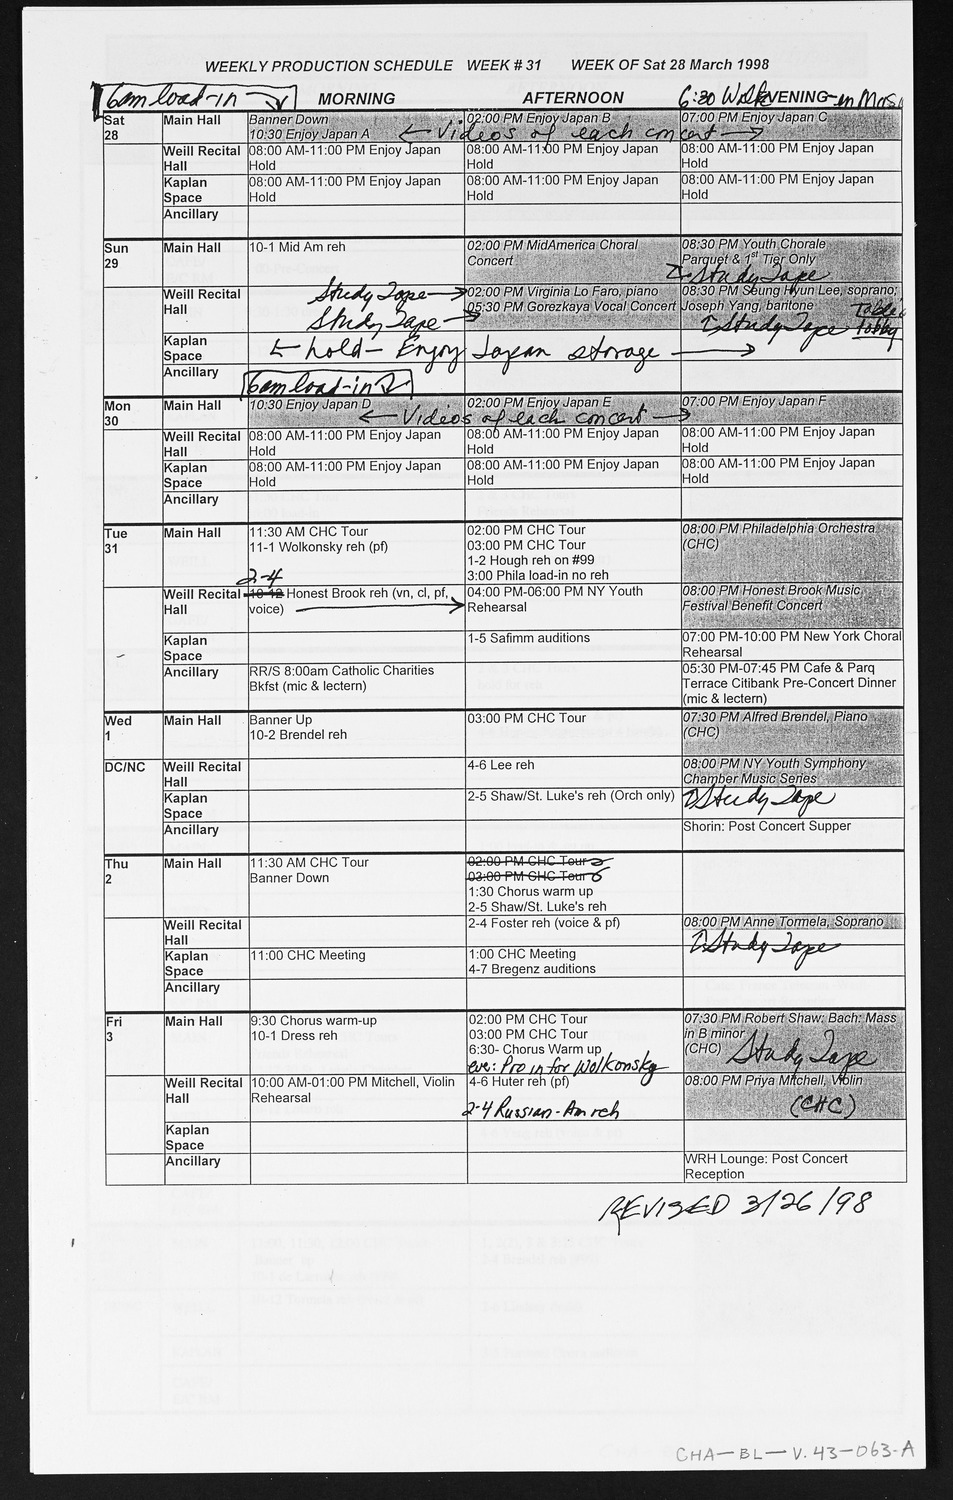 WEEKLY PRODUCTION SCHEDULE WEEK # 31 WEEK OF Sat 28 March 1998
6am load-in MORNING AFTERNOON 6:30 Walk EVENING in
Sat 28 Main Hall
Banner Down
10:30 Enjoy Japan A
02:00 PM Enjoy Japan B
07:00 PM Enjoy Japan C
← Videos of each concert →
Weill Recital Hall
08:00 AM-11:00 PM Enjoy Japan Hold
08:00 AM-11:00 PM Enjoy Japan Hold
08:00 AM-11:00 PM Enjoy Japan Hold
Kaplan Space
08:00 AM-11:00 PM Enjoy Japan Hold
08:00 AM-11:00 PM Enjoy Japan Hold
08:00 AM-11:00 PM Enjoy Japan Hold
Ancillary
Sun 29 Main Hall
10-1 Mid Am reh
02:00 PM MidAmerica Choral
Concert
08:30 PM Youth Chorale
Parquet & 1st Tier Only
Study Tape
Weill Recital Hall
Study Tape →
Study Tape →
02:00 PM Virginia Lo Faro, piano
05:30 PM Gorezkaya Vocal Concert
08:30 PM Seung Hyun Lee, soprano;
Joseph Yang, baritone
Study Tape
Table
Lobby
Kaplan Space
← hold – Enjoy Japan storage →
Ancillary
6am load-in
Mon 30 Main Hall
10:30 Enjoy Japan D
02:00 PM Enjoy Japan E
07:00 PM Enjoy Japan F
← Videos of each concert →
Weill Recital Hall
08:00 AM-11:00 PM Enjoy Japan Hold
08:00 AM-11:00 PM Enjoy Japan Hold
08:00 AM-11:00 PM Enjoy Japan Hold
Kaplan Space
08:00 AM-11:00 PM Enjoy Japan Hold
08:00 AM-11:00 PM Enjoy Japan Hold
08:00 AM-11:00 PM Enjoy Japan Hold
Ancillary
Tue 31 Main Hall
11:30 AM CHC Tour
11-1 Wolkonsky reh (pf)
02:00 PM CHC Tour
03:00 PM CHC Tour
1-2 Hough reh on #99
3:00 Phila load-in no reh
08:00 PM Philadelphia Orchestra
(CHC)
Weill Recital Hall
2-4
10-12 Honest Brook reh (vn, cl, pf,
voice) →
04:00 PM-06:00 PM NY Youth
Rehearsal
08:00 PM Honest Brook Music
Festival Benefit Concert
Kaplan Space
1-5 Safimm auditions
07:00 PM-10:00 PM New York Choral
Rehearsal
Ancillary
RR/S 8:00am Catholic Charities
Bkfst (mic & lectern)
05:30 PM-07:45 PM Cafe & Parq
Terrace Citibank Pre-Concert Dinner
(mic & lectern)
Wed 1 Main Hall
Banner Up
10-2 Brendel reh
03:00 PM CHC Tour
07:30 PM Alfred Brendel, Piano
(CHC)
DC/NC Weill Recital Hall
4-6 Lee reh
08:00 PM NY Youth Symphony
Chamber Music Series
Study Tape
Kaplan Space
2-5 Shaw/St. Luke's reh (Orch only)
Ancillary
Shorin: Post Concert Supper
Thu 2 Main Hall
11:30 AM CHC Tour
Banner Down
02:00 PM CHC Tour
03:00 PM CHC Tour
1:30 Chorus warm up
2-5 Shaw/St. Luke's reh
Weill Recital Hall
2-4 Foster reh (voice & pf)
08:00 PM Anne Tormela, Soprano
Study Tape
Kaplan Space
11:00 CHC Meeting
1:00 CHC Meeting
4-7 Bregenz auditions
Ancillary
Fri 3 Main Hall
9:30 Chorus warm-up
10-1 Dress reh
02:00 PM CHC Tour
03:00 PM CHC Tour
6:30- Chorus Warm up
eve: Pro in for Wolkonsky
07:30 PM Robert Shaw; Bach: Mass
in B minor
(CHC) Study Tape
Weill Recital Hall
10:00 AM-01:00 PM Mitchell, Violin
Rehearsal
4-6 Huter reh (pf)
2-4 Russian-Am reh
08:00 PM Priya Mitchell, Violin
(CHC)
Kaplan Space
Ancillary
WRH Lounge: Post Concert
Reception
REVISED 3/26/98
CHA-BL-V.43-063-A